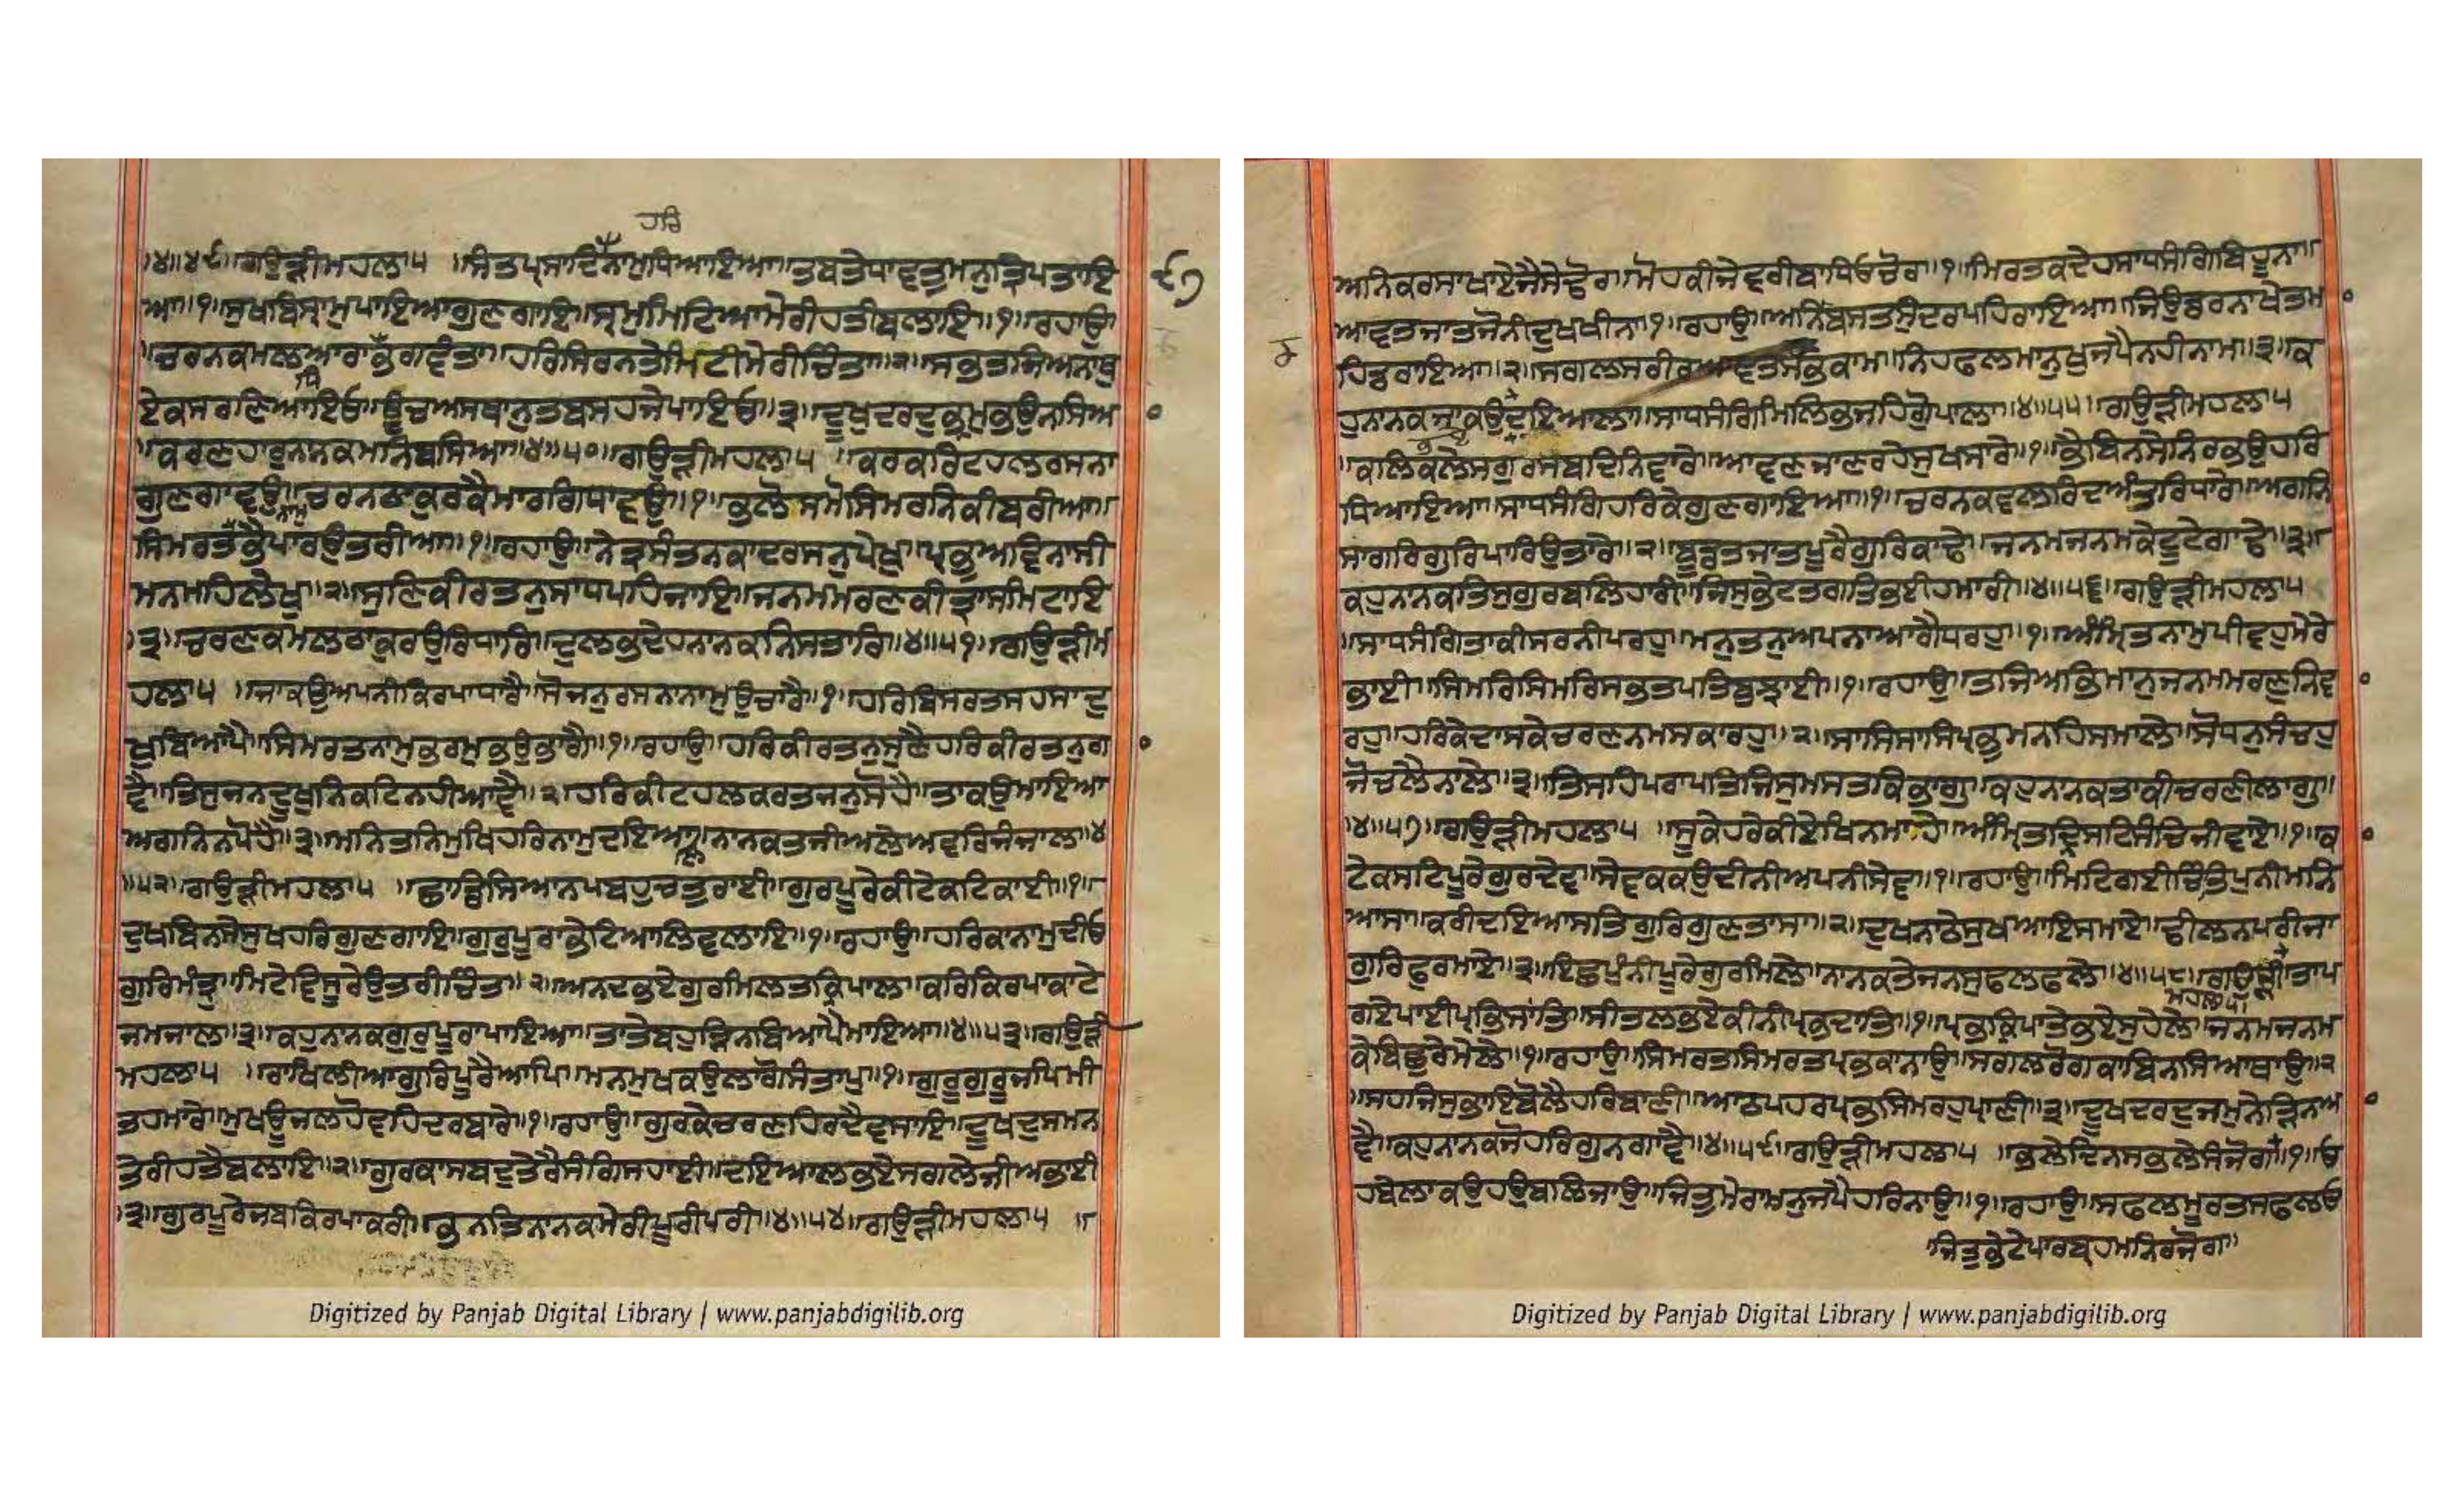 ਹਰਿ
॥੪॥੪੯॥ਗਉੜੀਮਹਲਾ੫ ॥ਸੰਤਪ੍ਰਸਾਦਿਨਾਮੁਧਿਆਇਆ॥ਤਬਤੇਧਾਵਤੁਮਨੁਤ੍ਰਿਪਤਾਇ
੯੭
ਆ॥੧॥ਸੁਖਬਿਸ੍ਰਾਮੁਪਾਇਆਗੁਣਗਾਇ॥ਸ੍ਰਮੁਮਿਟਿਆਮੇਰੀਹਤੀਬਲਾਇ॥੧॥ਰਹਾਉ
॥ਚਰਨਕਮਲਆਰਾਭਗਵੰਤਾ॥ਹਰਿਸਿਮਰਨਤੇਮਿਟੀਮੇਰੀਚਿੰਤਾ॥੨॥ਸਭਤਜਿਅਨਾਥੁ
ਧਿ
ਏਕਸਰਣਿਆਇਓ॥ਊਚਅਸਥਾਨੁਤਬਸਹਜੇਪਾਇਓ॥੩॥ਦੂਖੁਦਰਦੁਭਰਮੁਭਉਨਸਿਆ
॥ਕਰਣਹਾਰੁਨਾਨਕਮਨਿਬਸਿਆ॥੪॥੫੦॥ਗਉੜੀਮਹਲਾ੫ ॥ਕਰਕਰਿਟਹਲਰਸਨਾ
ਗੁਣਗਾਵਉ॥ਚਰਨਠਾਕੁਰਕੈਮਾਰਗਿਧਾਵਉ॥੧॥ਭਲੋਸਮੋਸਿਮਰਨਕੀਬਰੀਆ॥
ਨਾਮ
ਸਿਮਰਤਭੈਪਾਰਉਤਰੀਆ॥੧॥ਰਹਾਉ॥ਨੇਤ੍ਰਸੰਤਨਕਾਦਰਸਨੁਪੇਖੁ॥ਪ੍ਰਭਅਵਿਨਾਸੀ
ਮਨਮਹਿਲੇਖੁ॥੨॥ਸੁਣਿਕੀਰਤਨੁਸਾਧਪਹਿਜਾਇ॥ਜਨਮਮਰਣਕੀਤ੍ਰਾਸਮਿਟਾਇ
॥੩॥ਚਰਣਕਮਲਠਾਕੁਰਉਰਿਧਾਰਿ॥ਦੁਲਭਦੇਹਨਾਨਕਨਿਸਤਾਰਿ॥੪॥੫੧॥ਗਉੜੀਮ
ਹਲਾ੫ ॥ਜਾਕਉਅਪਨੀਕਿਰਪਾਧਾਰੈ॥ਸੋਜਨੁਰਸਨਾਨਾਮੁਉਚਾਰੈ॥੧॥ਹਰਿਬਿਸਰਤਸਹਸਾਦੁ
ਖੁਬਿਆਪੈ॥ਸਿਮਰਤਨਾਮੁਭਰਮੁਭਉਭਾਗੈ॥੧॥ਰਹਾਉ॥ਹਰਿਕੀਰਤਨੁਸੁਣੈਹਰਿਕੀਰਤਨੁਗਾ
ਵੈ॥ਤਿਸੁਜਨਦੂਖੁਨਿਕਟਿਨਹੀਆਵੈ॥੨॥ਹਰਿਕੀਟਹਲਕਰਤਜਨੁਸੋਹੈ॥ਤਾਕਉਮਾਇਆ
ਅਗਨਿਨਪੋਹੈ॥੩॥ਮਨਿਤਨਿਮੁਖਿਹਰਿਨਾਮੁਦਇਆਲ॥ਨਾਨਕਤਜੀਅਲੇਅਵਰਿਜੰਜਾਲ॥੪
॥੫੨॥ਗਉੜੀਮਹਲਾ੫ ॥ਛਾਡਿਸਿਆਨਪਬਹੁਚਤੁਰਾਈ॥ਗੁਰਪੂਰੇਕੀਟੇਕਟਿਕਾਈ॥੧॥
ਦੁਖਬਿਨਸੇਸੁਖਹਰਿਗੁਣਗਾਇ॥ਗੁਰੁਪੂਰਾਭੇਟਿਆਲਿਵਲਾਇ॥੧॥ਰਹਾਉ॥ਹਰਿਕਾਨਾਮੁਦੀਓ
ਗੁਰਿਮੰਤ੍ਰੁ॥ਮਿਟੇਵਿਸੂਰੇਉਤਰੀਚਿੰਤ॥੨॥ਅਨਦਭਏਗੁਰਮਿਲਤਕ੍ਰਿਪਾਲ॥ਕਰਿਕਿਰਪਾਕਾਟੇ
ਜਮਜਾਲ॥੩॥ਕਹੁਨਾਨਕਗੁਰੁਪੂਰਾਪਾਇਆ॥ਤਾਤੇਬਹੁੜਿਨਬਿਆਪੈਮਾਇਆ॥੪॥੫੩॥ਗਉੜੀ
ਮਹਲਾ੫ ॥ਰਾਖਿਲੀਆਗੁਰਿਪੂਰੈਆਪਿ॥ਮਨਮੁਖਕਉਲਾਗੋਸੰਤਾਪੁ॥੧॥ਗੁਰੂਗੁਰੂਜਪਿਮੀ
ਤਹਮਾਰੇ॥ਮੁਖਊਜਲਹੋਵਹਿਦਰਬਾਰੇ॥੧॥ਰਹਾਉ॥ਗੁਰਕੇਚਰਣਹਿਰਦੈਵਸਾਇ॥ਦੁਖਦੁਸਮਨ
ਤੇਰੀਹਤੈਬਲਾਇ॥੨॥ਗੁਰਕਾਸਬਦੁਤੇਰੈਸੰਗਿਸਹਾਈ॥ਦਇਆਲਭਏਸਗਲੇਜੀਅਭਾਈ
॥੩॥ਗੁਰਪੂਰੇਜਬਕਿਰਪਾਕਰੀ॥ਭਨਤਿਨਾਨਕਮੇਰੀਪੂਰੀਪਰੀ॥੪॥੫੪॥ਗਉੜੀਮਹਲਾ੫ ॥
Digitized by Panjab Digital Library | www.panjabdigilib.org
ਅਨਿਕਰਸਾਖਾਏਜੈਸੇਢੋਰ॥ਮੋਹਕੀਜੇਵਰੀਬਾਧਿਓਚੋਰ॥੧॥ਮਿਰਤਕਦੇਹਸਾਧਸੰਗਿਬਿਹੂਨਾ॥
ਆਵਤਜਾਤਜੋਨੀਦੁਖਖੀਨਾ॥੧॥ਰਹਾਉ॥ਅਨਿਬਸਤ੍ਰਸੁੰਦਰਪਹਿਰਾਇਆ॥ਜਿਉਡਰਨਾਖੇਤਮਾ
ਹਿਡਰਾਇਆ॥੨॥ਸਗਲਸਰੀਰਆਵਤਸਭਕਾਮ॥ਨਿਹਫਲਮਾਨੁਖੁਜਪੈਨਹੀਨਾਮ॥੩॥ਕ
ਹੁਨਾਨਕਜਾਕਉਦਇਆਲਾ॥ਸਾਧਸੰਗਿਮਿਲਿਭਜਹਿਗੋਪਾਲਾ॥੪॥੫੫॥ਗਉੜੀਮਹਲਾ੫
॥ਕਲਿਕਲੇਸਗੁਰਸਬਦਿਨਿਵਾਰੇ॥ਆਵਣਜਾਣਰਹੇਸੁਖਸਾਰੇ॥੧॥ਭੈਬਿਨਸੇਨਿਰਭਉਹਰਿ
ਧਿਆਇਆ॥ਸਾਧਸੰਗਿਹਰਿਕੇਗੁਣਗਾਇਆ॥੧॥ਚਰਨਕਵਲਰਿਦਅੰਤਰਿਧਾਰੇ॥ਅਗਨਿ
ਸਾਗਰਿਗੁਰਿਪਾਰਿਉਤਾਰੇ॥੨॥ਬੂਡਤਜਾਤਪੂਰੈਗੁਰਿਕਾਢੇ॥ਜਨਮਜਨਮਕੇਟੂਟੇਗਾਢੇ॥੩॥
ਕਹੁਨਾਨਕਤਿਸੁਗੁਰਬਲਿਹਾਰੀ॥ਜਿਸੁਭੇਟਤਗਤਿਭਈਹਮਾਰੀ॥੪॥੫੬॥ਗਉੜੀਮਹਲਾ੫
॥ਸਾਧਸੰਗਿਤਾਕੀਸਰਨੀਪਰਹੁ॥ਮਨੁਤਨੁਅਪਨਾਆਗੈਧਰਹੁ॥੧॥ਅੰਮ੍ਰਿਤਨਾਮੁਪੀਵਹੁਮੇਰੇ
ਭਾਈ॥ਸਿਮਰਿਸਿਮਰਿਸਭਤਪਤਿਬੁਝਾਈ॥੧॥ਰਹਾਉ॥ਤਜਿਅਭਿਮਾਨੁਜਨਮਮਰਣੁਨਿਵਾ
ਰਹੁ॥ਹਰਿਕੇਦਾਸਕੇਚਰਣਨਮਸਕਾਰਹੁ॥੨॥ਸਾਸਿਸਾਸਿਪ੍ਰਭੁਮਨਹਿਸਮਾਲੇ॥ਸੋਧਨੁਸੰਚਹੁ
ਜੋਚਲੈਨਾਲੇ॥੩॥ਤਿਸਹਿਪਰਾਪਤਿਜਿਸੁਮਸਤਕਿਭਾਗੁ॥ਕਹੁਨਾਨਕਤਾਕੀਚਰਣੀਲਾਗੁ॥
੪॥੫੭॥ਗਉੜੀਮਹਲਾ੫ ॥ਸੂਕੇਹਰੇਕੀਏਖਿਨਮਾਹੇ॥ਅੰਮ੍ਰਿਤਦ੍ਰਿਸਟਿਸੰਚਿਜੀਵਾਏ॥੧॥ਕਾ
ਟੇਕਸਟਿਪੂਰੇਗੁਰਦੇਵ॥ਸੇਵਕਕਉਦੀਨੀਅਪਨੀਸੇਵ॥੧॥ਰਹਾਉ॥ਮਿਟਿਗਈਚਿੰਤਪੁਨੀਮਨਿ
ਆਸਾ॥ਕਰੀਦਇਆਸਤਿਗੁਰਿਗੁਣਤਾਸਾ॥੨॥ਦੁਖਨਾਠੇਸੁਖਆਇਸਮਾਏ॥ਢੀਲਨਪਰੀਜਾ
ਗੁਰਿਫੁਰਮਾਏ॥੩॥ਇਛਪੁੰਨੀਪੂਰੇਗੁਰਮਿਲੇ॥ਨਾਨਕਤੇਜਨਸੁਫਲਫਲੇ॥੪॥੫੮॥ਗਉੜੀ॥ਤਾਪ
ਮਹਲਾ੫
ਗਏਪਾਈਪ੍ਰਭਿਸਾਂਤਿ॥ਸੀਤਲਭਏਕੀਨੀਪ੍ਰਭਦਾਤਿ॥੧॥ਪ੍ਰਭਕ੍ਰਿਪਾਤੇਭਏਸੁਹੇਲੇ॥ਜਨਮਜਨਮ
ਕੇਬਿਛੁਰੇਮੇਲੇ॥੧॥ਰਹਾਉ॥ਸਿਮਰਤਸਿਮਰਤਪ੍ਰਭਕਾਨਾਉ॥ਸਗਲਰੋਗਕਾਬਿਨਸਿਆਥਾਉ॥੨
॥ਸਹਜਿਸੁਭਾਇਬੋਲੈਹਰਿਬਾਣੀ॥ਆਠਪਹਰਪ੍ਰਭਸਿਮਰਹੁਪ੍ਰਾਣੀ॥੩॥ਦੂਖਦਰਦੁਜਮੁਨੇੜਿਨਆ
ਵੈ॥ਕਹੁਨਾਨਕਜੋਹਰਿਗੁਨਗਾਵੈ॥੪॥੫੯॥ਗਉੜੀਮਹਲਾ੫ ॥ਭਲੇਦਿਨਸਭਲੇਸੰਜੋਗ॥੧॥ਓ
ਹਬੇਲਾਕਉਹਉਬਲਿਜਾਉ॥ਜਿਤੁਮੇਰਾਮਨੁਜਪੈਹਰਿਨਾਉ॥੧॥ਰਹਾਉ॥ਸਫਲਮੂਰਤਸਫਲਓ
ਜਿਤੁਭੇਟੇਪਾਰਬ੍ਰਹਮਨਿਰਜੋਗ॥
Digitized by Panjab Digital Library | www.panjabdigilib.org